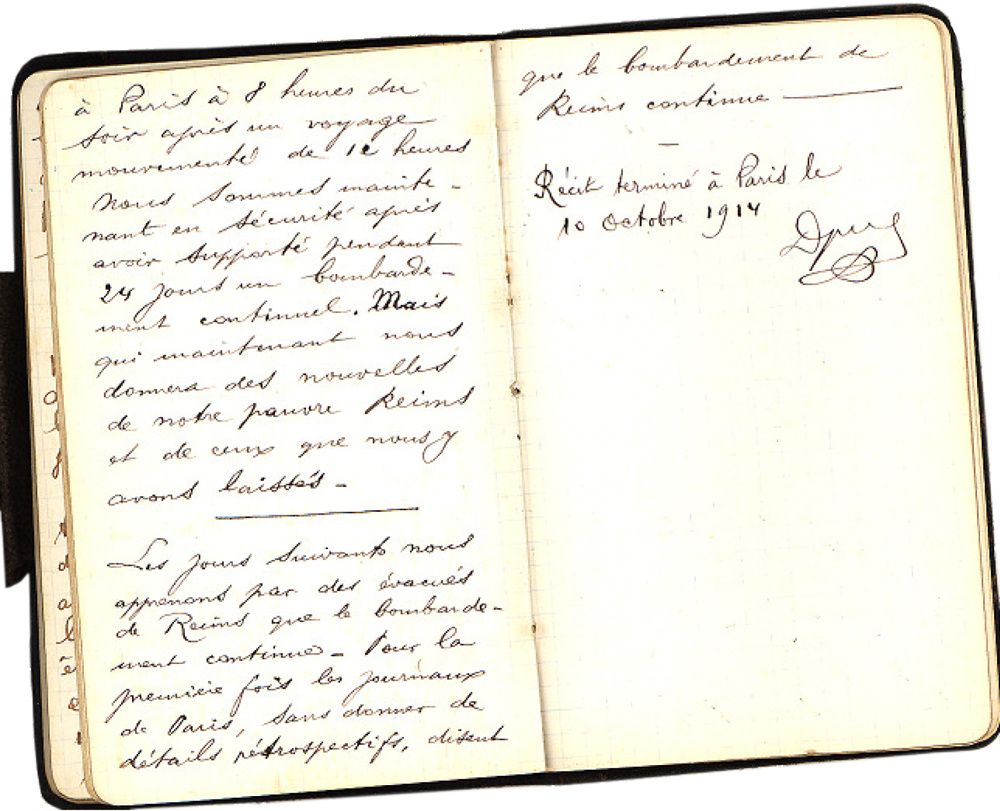 à Paris à 8 heures du
soir après un voyage
mouvementé de 12 heures
Nous sommes mainte-
nant en sécurité après
avoir supporté pendant
24 jours un bombarde-
ment continuel. Mais
qui maintenant nous
donnera des nouvelles
de notre pauvre Reims
et de ceux que nous y
avons laissés -
Les jours suivants nous
apprenons par des évacués
de Reims que le bombarde-
ment continue - Pour la
première fois les journaux
de Paris, sans donner de
détails rétrospectifs, disent
que le bombardement de
Reims continue
Récit terminé à Paris le
10 octobre 1914